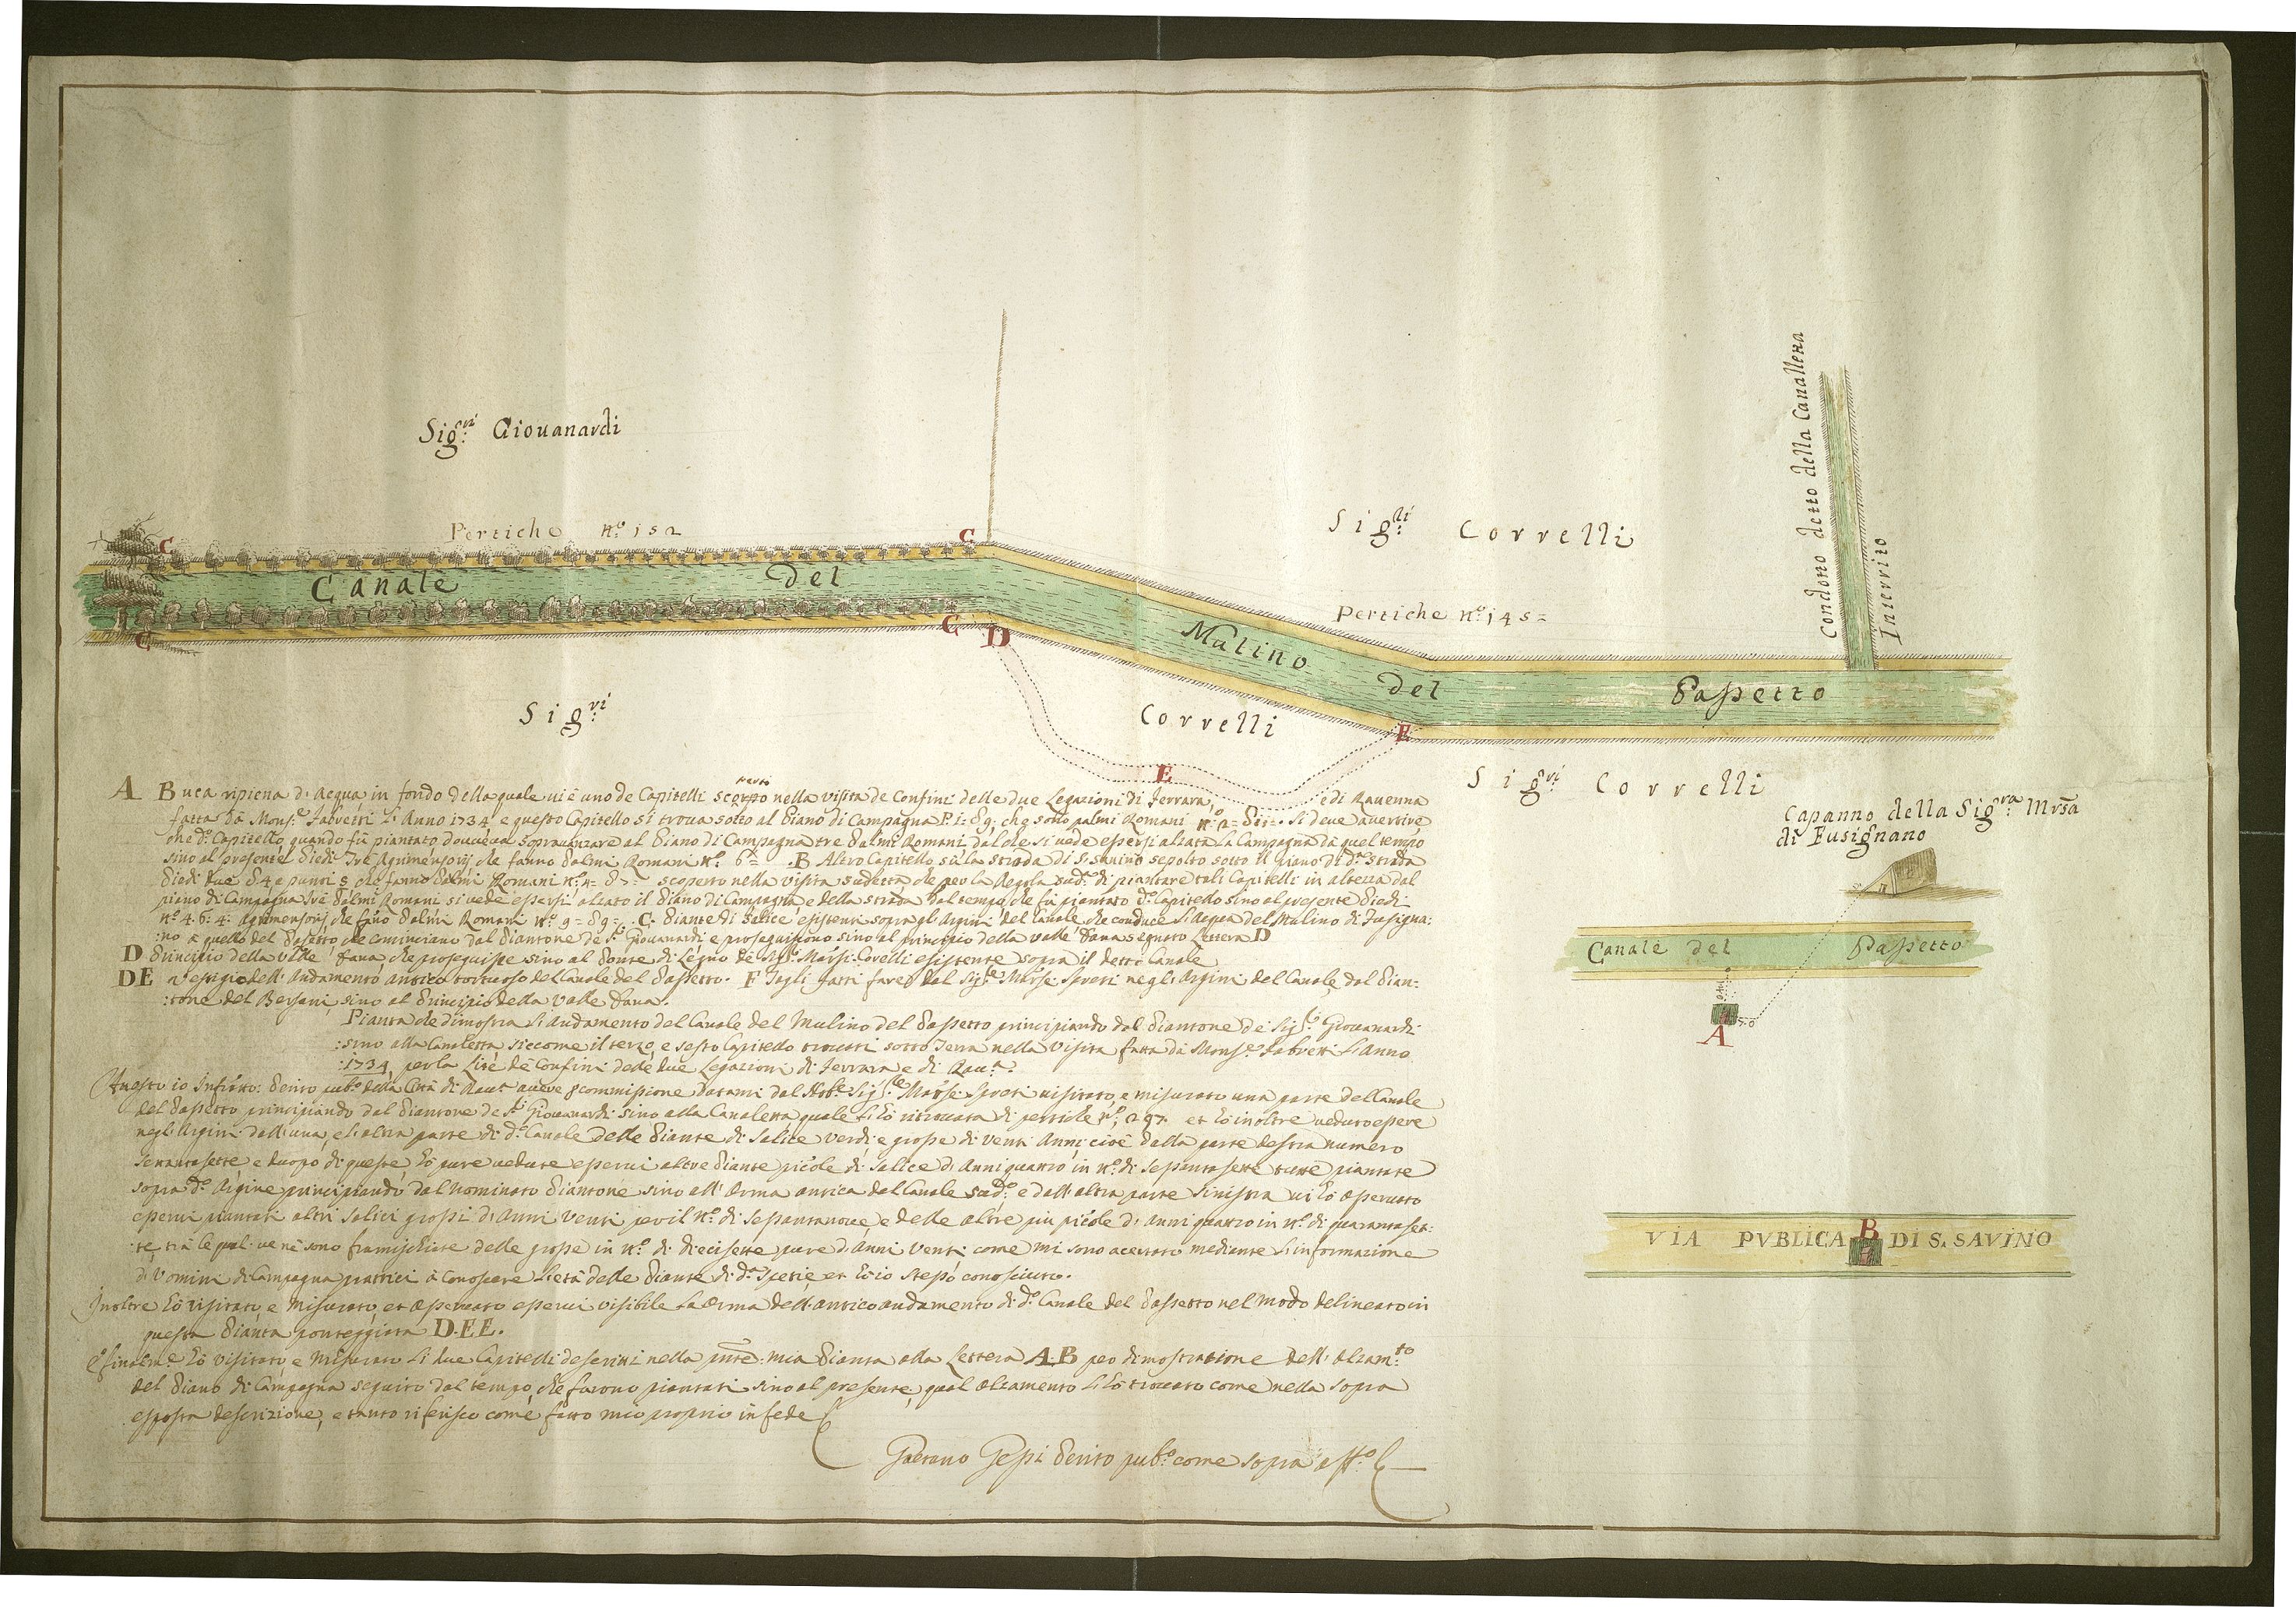 Sig.ri Giouanardi
Pertiche N.o 152
Sig.li Correlli
Pertiche N.o 145=
Condotto detto della Canalletta
Interrito
C
C
C
C
D
E
E
Canale del Mulino del Passetto
Sig.ri Correlli
Sig.ri Correlli
Capanno della Sig.ra Mrsa
di Fusignano
Canale del Passetto
A
VIA PVBLICA B DI S. SAVINO
A Buca ripiena di Acqua in fondo della quale ui è uno de Capitelli scoperto nella visita de Confini delle due Legazioni di Ferrara, e di Rauenna
fatta da Mons.e Fabretti L'Anno 1734 e questo Capitello si troua sotto al Piano di Campagna P. 1: 89: che sono palmi Romani N.o 2= Si deue auertire
che d.o Capitello quando fù piantato doueua soprauanzare al Piano di Campagna tre Palmi Romani dal che si uede essersi alzata la Campagna da quel tempo
sino al presente Piedi Tre Agrimensorij che fanno Palmi Romani N.o 6= . B Altro Capitello sù la strada di S. Sauino sepolto sotto il piano di d.a Strada
Piedi due 84 e punti 5 che fanno Palmi Romani N.o 4= scoperto nella visita sudetta che per la Regola sud.a di piantare tali Capitelli in altezza dal
piano di Campagna tre Palmi Romani si uede essersi alzato il Piano di Campagna, e della strada dal tempo che fù piantato d.o Capitello sino al presente Piedi
N.o 4: 6: 4: Agrimensorij che fano Palmi Romani N.o 9= 89= . C. Piante di Salice esistenti sopra gl'Argini del Canale che conduce L'Acqua del Mulino di Fusigna:
:no a quello del Passetto che cominciano dal Piantone de S.ri Giouanardi e proseguiscono sino al principio della valle Fana segnato Lettera D
D Principio della Valle Fana che proseguisce sino al Ponte di Legno de Sig.ri Marsi. Corelli esistente sopra il detto Canale
DE Vestigie dell'Andamento antico tortuoso del Canale del Passetto. F Tagli fatti fare dal Sig.e Marse Spreti negl'Argini del Canale dal Pian:
:tone del Bersani sino al Principio della Valle Fana.
Pianta che dimostra L'andamento del Canale del Mulino del Passetto principiando dal Piantone de Sig.ri Giouanardi
:sino alla Canaletta, siccome il terzo, e sesto Capitello trouati sotto Terra nella Visita fatta da Mons.e Fabretti L'Anno
:1734 per la Lite de Confini delle due Legazioni di Ferrara e di Rau.a
Attesto io Infrãtto: Perito pub.o della Città di Rau.a auere p commissione datami dal Nob.e Sig.re Marse: Spreti uisitato, e misurato una parte del Canale
del Passetto principiando dal Piantone de S.ri Giouanardi sino alla Canaletta, quale L'hò ritrouata di pertiche N.o 297 et hò inoltre ueduto essere
negl'Argini dall'una, e l'altra parte di d.o Canale delle Piante di Salice verdi, e grosse di Venti Anni, cioè dalla parte destra numero
settantasette e duopo di queste hò pure uedute esserui altre Piante picole di Salice d'Anni quattro in N.o di sessantasette tutte piantate
sopra d.o Argine principiando dal nominato Piantone sino all'orma antica del Canale sud.o e dall'altra parte sinistra ui hò osseruato
esserui piantati altri Salici grossi d'Anni Venti per il N.o di sessantanoue, e delle altre più picole d'Anni quattro in N.o di quarantaset:
:te, trà le quali ue ne sono framischiate delle grosse in N.o di diecisette pure d'Anni Venti come mi sono acertato mediante L'informazione
d'Vomini di Campagna prattici à conoscere L'età delle Piante di d.a Specie, et hò io stesso conosciuto.
Inoltre hò visitato, e misurato, et osseruato esserui visibile La orma dell'antico andamento di d.o Canale del Passetto nel modo delineato in
questa Pianta ponteggiata D.E.E.
E finalm.e hò visitato e misurato li due Capitelli descritti nella pñte: mia Pianta alla Lettera A. B per dimostrazione dell'alzam.to
del Piano di Campagna seguito dal tempo, che furono piantati sino al presente, qual alzamento L'hò trouato come nella sopra
esposta descrizione, e tanto riferisco come fatto mio proprio in fede
Gaetano Gessi Perito pub.o come sopra aff.o